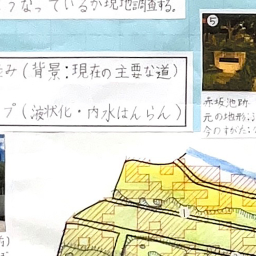 うなっているか現地調査する。
み(背景:現在の主要な道)
プ(液状化・内水はんらん)
5
赤坂池跡
元の地形:
今のすがた:
1